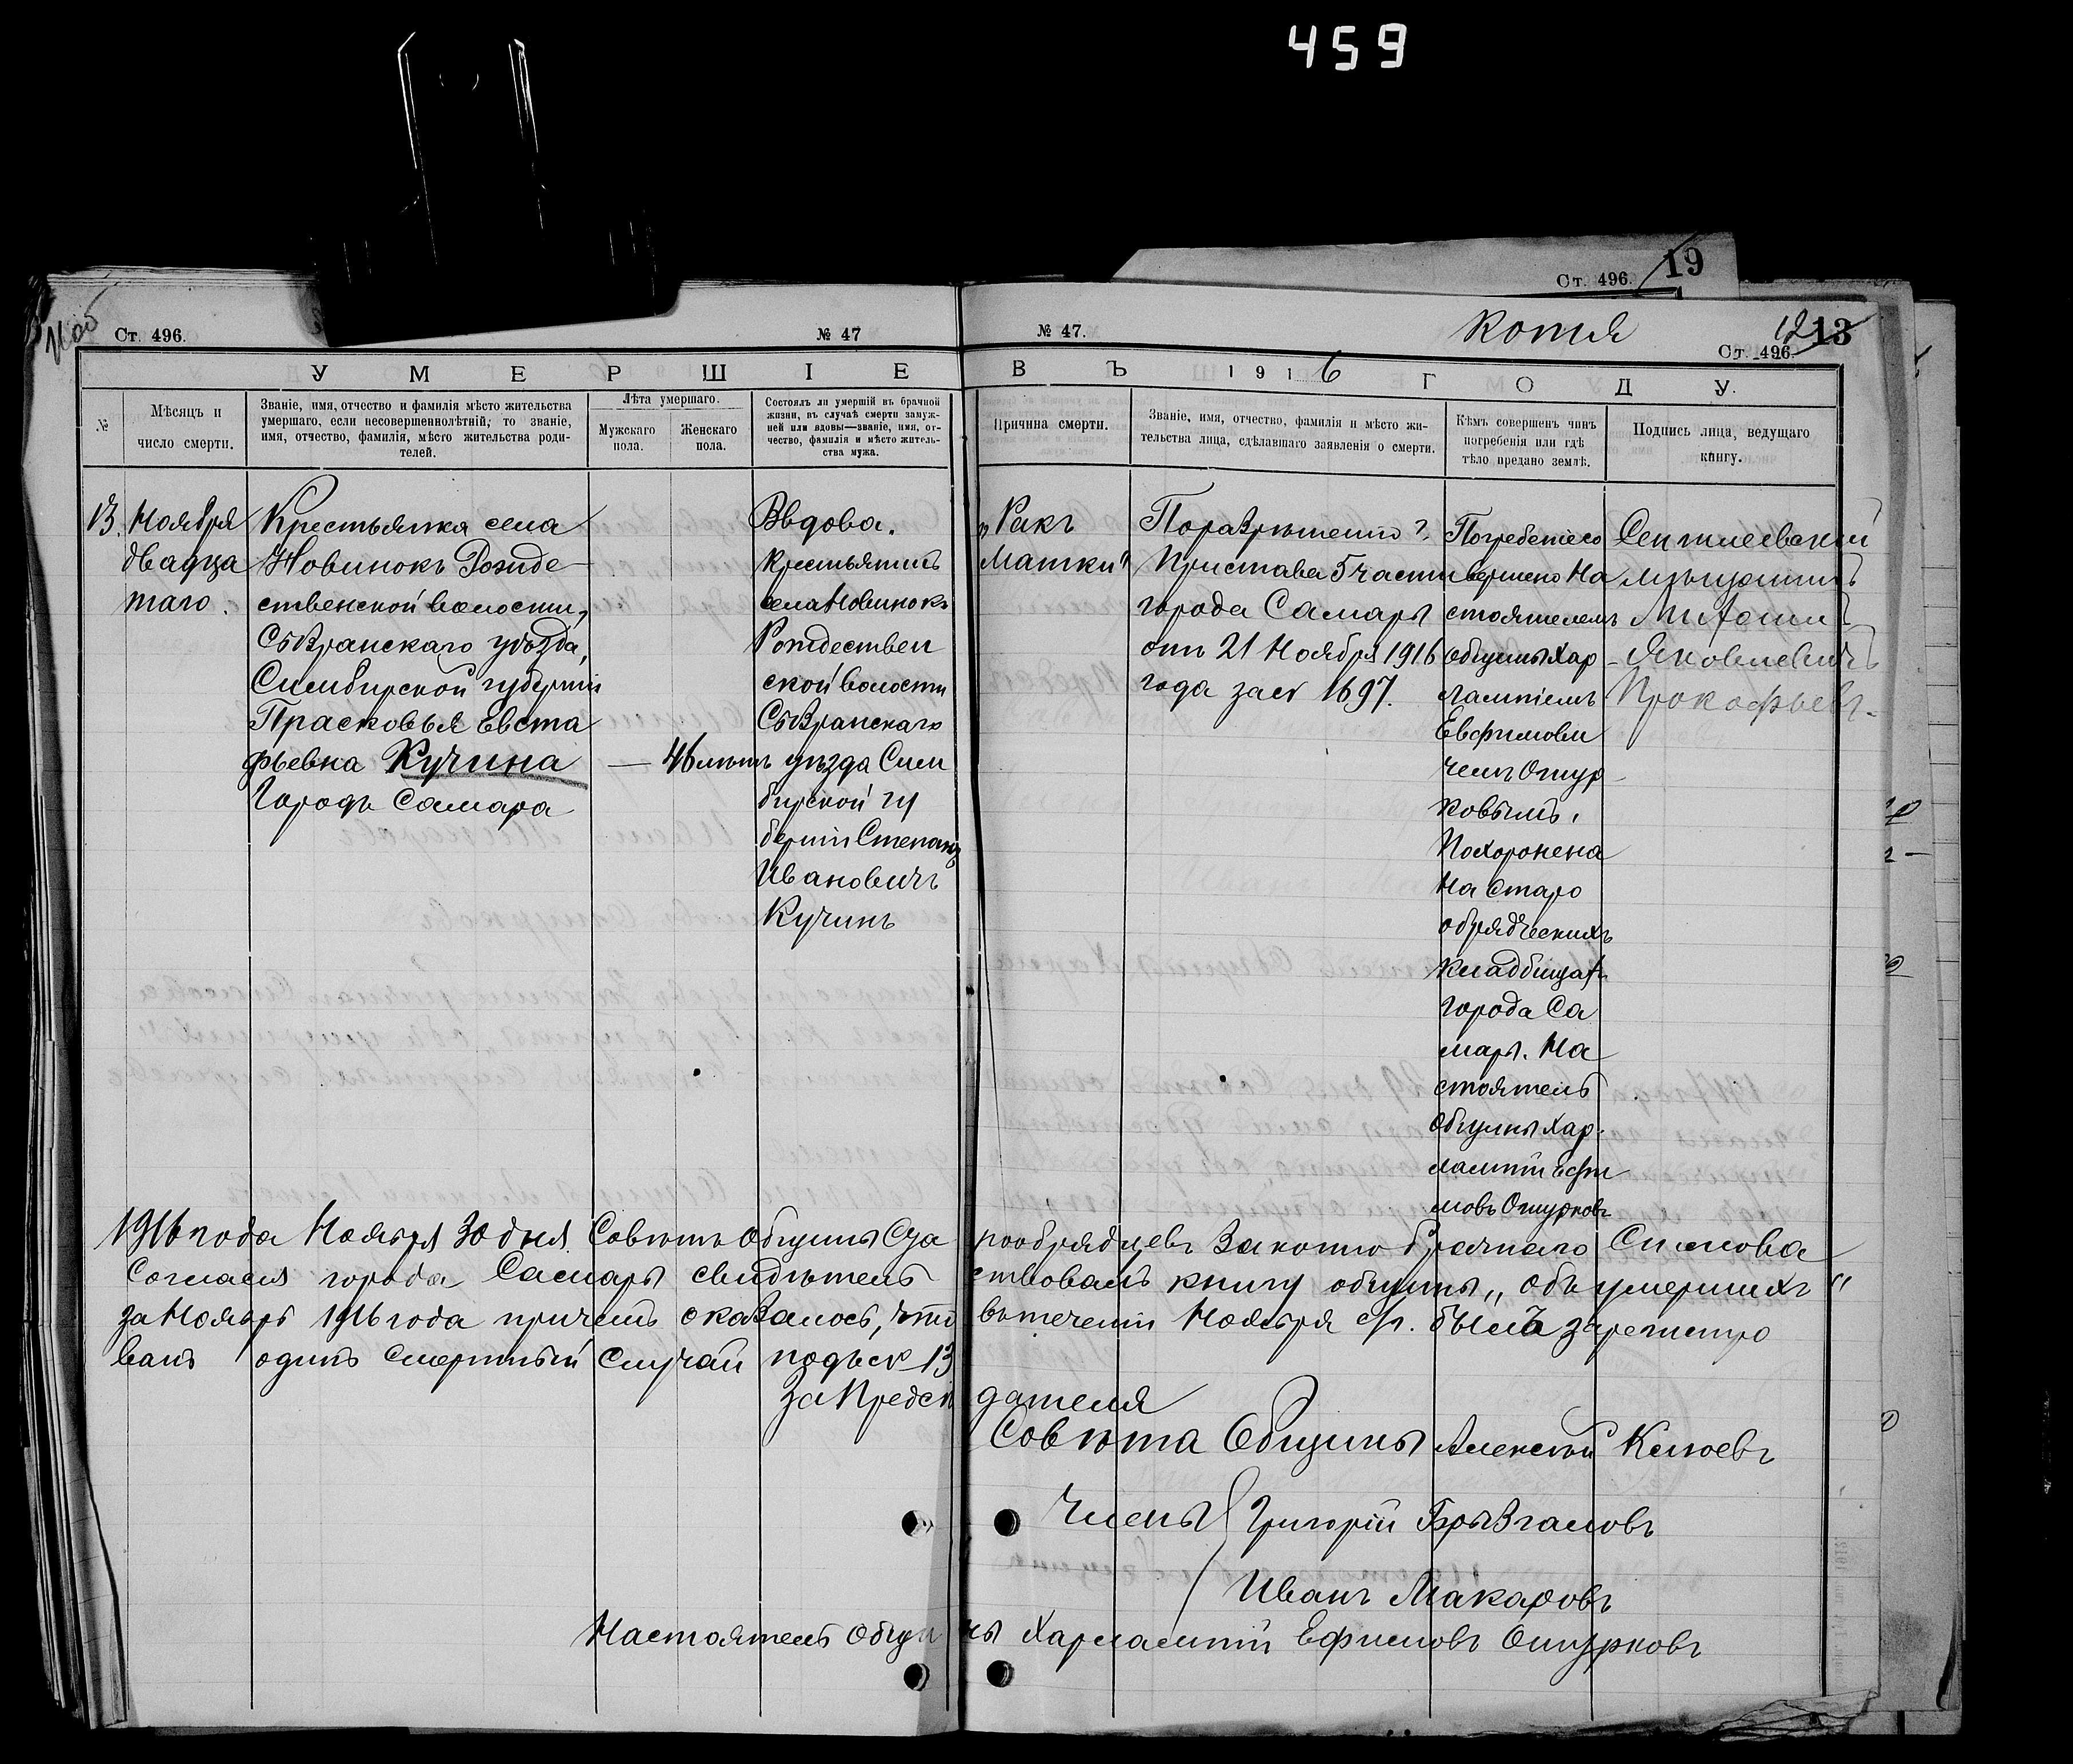 459
Ст. 496. 19
Ст. 496.
№ 47
№ 47.
Копія
12 13
Ст. 496.
УМЕРШІЕ
ВЪ 1916 ГОДУ.
№
Мѣсяцъ и
число смерти.
Званіе, имя, отчество и фамилія мѣсто жительства
умершаго, если несовершеннолѣтній; то званіе,
имя, отчество, фамилія, мѣсто жительства роди-
телей.
Лѣта умершаго.
Мужскаго
пола.
Женскаго
пола.
Состоялъ ли умершій въ брачной
жизни, въ случаѣ смерти замуж-
ней или вдовы—званіе, имя, от-
чество, фамилія и мѣсто житель-
ства мужа.
Причина смерти.
Званіе, имя, отчество, фамилія и мѣсто жи-
тельства лица, сдѣлавшаго заявленія о смерти.
Кѣмъ совершенъ чинъ
погребенія или гдѣ
тѣло предано землѣ.
Подпись лица, ведущаго
книгу.
13.
Ноября
двадца
таго.
Крестьянка села
Новинокъ Рожде-
ственской волости,
Сызранскаго уѣзда,
Симбирской губерніи
Прасковья Евста
фьевна Кучина
Городъ Самара
— 46 лѣтъ
Вдова.
Крестьянинъ
села Новинокъ
Рождествен
ской волости
Сызранскаго
уѣзда Сим
бирской гу
берніи Степанъ
Ивановичъ
Кучинъ
„Ракъ
Матки"
По разрѣшенію г.
Пристава 5 части
города Самары
отъ 21 Ноября 1916
года за № 1697.
Погребеніе со
вершено На
стоятелемъ
общины Хар
лампіемъ
Евфимови
чемъ Ошур
ковымъ.
Похоронена
на Старо
обрядческихъ
кладбищахъ
города Са
мары. На
стоятель
общины Хар
лампій Ефи
мовъ Ошурковъ
Сенгилеевскій
мѣщанинъ
Яковлевичъ
Прокофьевъ.
1916 года Ноября 30 дня Совѣтъ Общины Ста рообрядцевъ Законно брачнаго Спасова
Согласія города Самары свидѣтель ствовалъ книгу общины „объ умершихъ"
за Ноябрь 1916 года причемъ оказалось, что въ теченіи Ноября с/г. былъ зарегистро
ванъ одинъ смертный случай подъ № 13
за Предсѣ дателя
Совѣта Общины Алексѣй Клюевъ
Члены Григорій Брызгаловъ
Иванъ Макаровъ
Настоятель Общи ны Харлампій Ефимовъ Ошурковъ